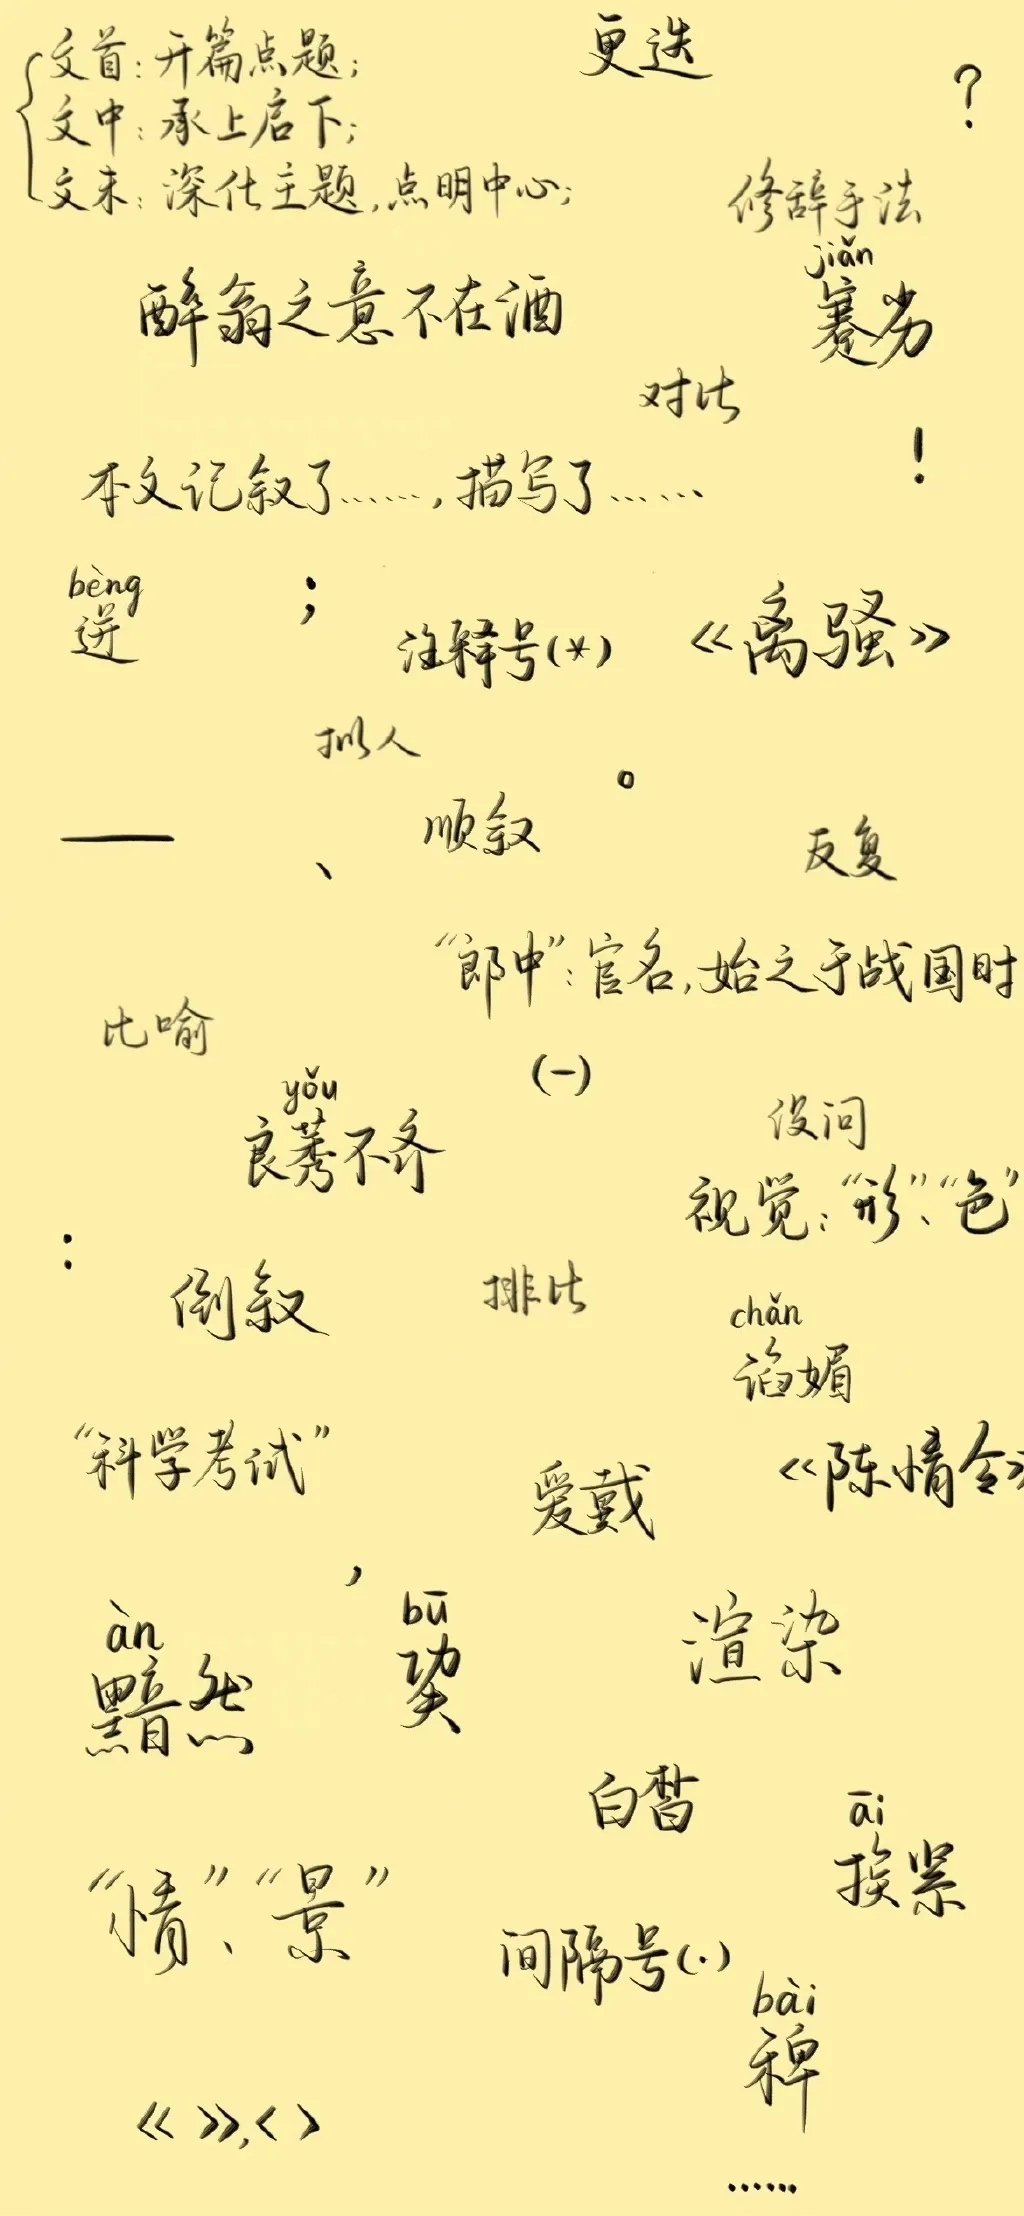 文首：开篇点题；
更迭
？
文中：承上启下；
文末：深化主题，点明中心；
修辞手法
jiǎn
蹇劣
醉翁之意不在酒
对比
！
本文记叙了……，描写了……
bèng
迸
；
注释号(*)
《离骚》
拟人
。
顺叙
——
、
反复
“郎中”：官名，始之于战国时
比喻
(一)
yǒu
良莠不齐
设问
视觉：“形”、“色”
：
倒叙
排比
chǎn
谄媚
“科学考试”
爱戴
《陈情令》
，
àn
黯然
bū
渲染
白皙
āi
挨紧
“情”、“景”
间隔号(·)
bài
稗
《 》，〈 〉
……